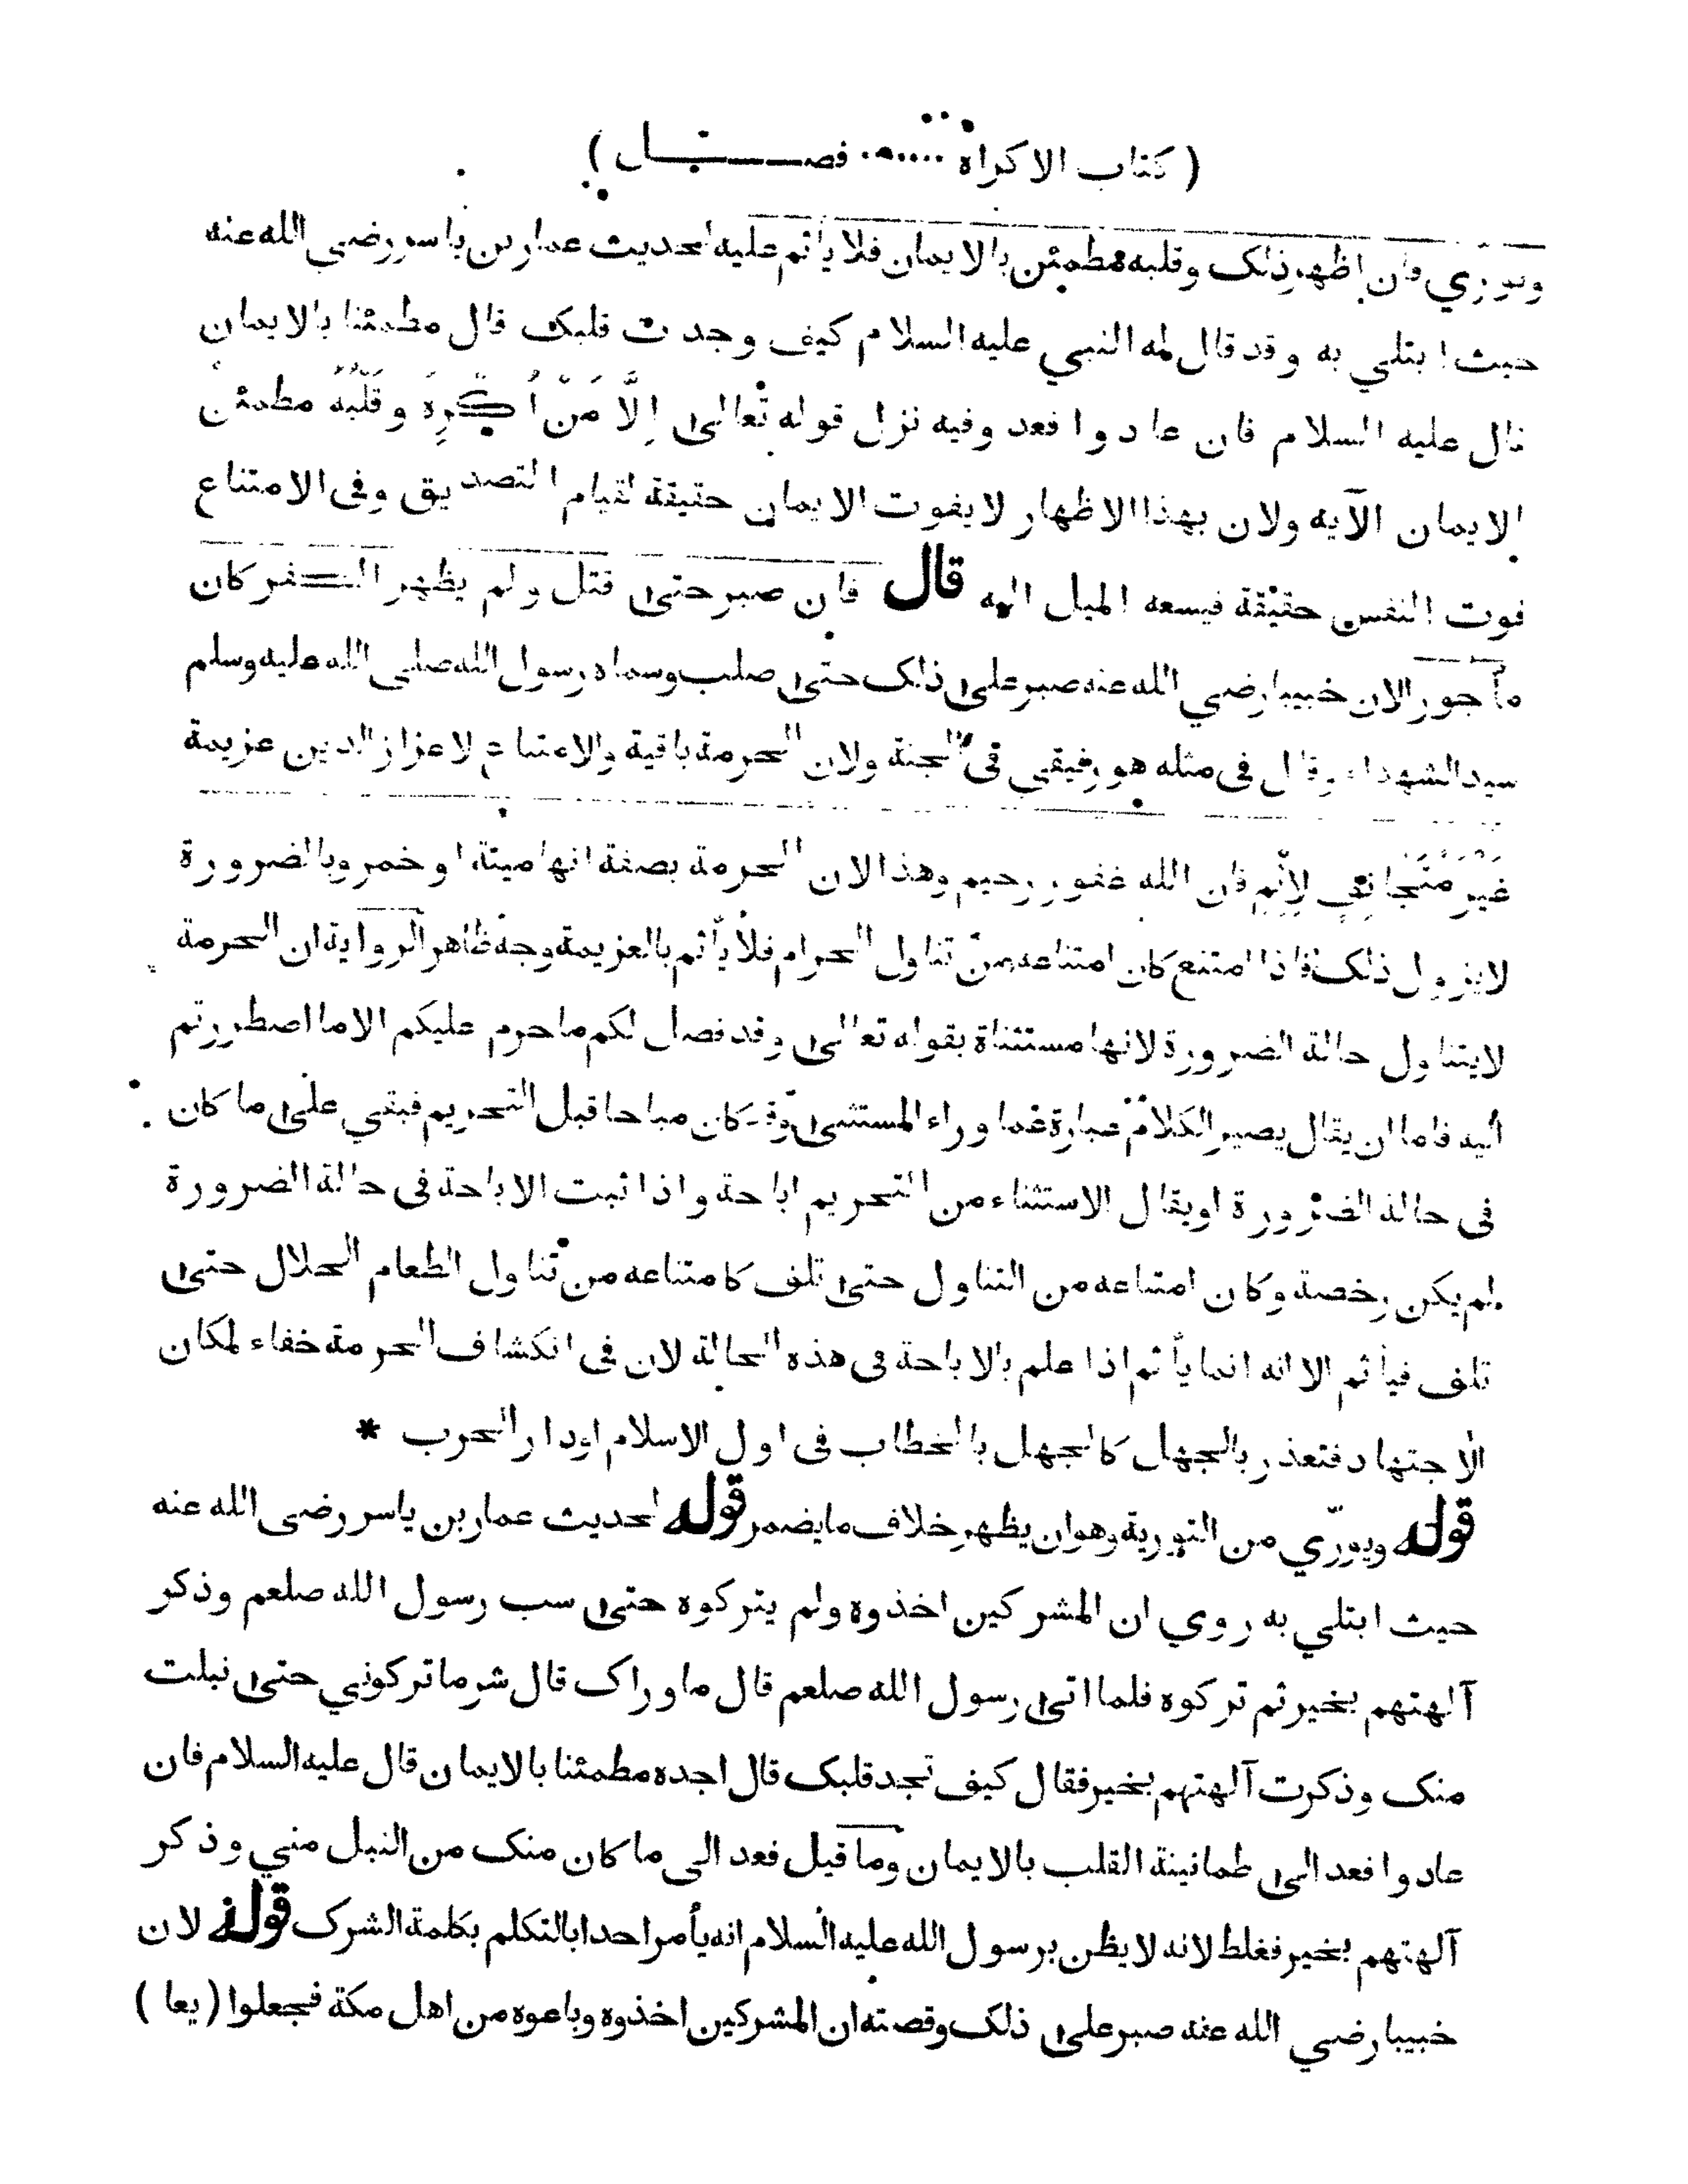 ( كتاب الاكراه ...... فصـــــــل )
ويوري فان اظهر ذلك وقلبه مطمئن بالايمان فلا يأثم عليه لحديث عمار بن ياسر رضي الله عنه
حيث ابتلي به وقد قال له النبي عليه السلام كيف وجدت قلبك قال مطمئنا بالايمان
قال عليه السلام فان عادوا فعد وفيه نزل قوله تعالى اِلَّا مَنْ اُكْرِهَ وقَلْبُهُ مطمئن
الايمان الآيه ولان بهذا الاظهار لا يفوت الايمان حقيقة لقيام التصديق وفى الامتناع
فوت النفس حقيقة فيسعه الميل اليه قال فان صبر حتى قتل ولم يظهر الكفر كان
مأجورالان خبيبا رضي الله عنه صبر على ذلك حتى صلب وسماه رسول الله صلى الله عليه وسلم
سيد الشهداء وقال فى مثله هو رفيقي فى الجنة ولان الحرمة باقية والامتناع لاعزاز الدين عزيمة
غَيْرَ مُتَجانِفٍ لِاِثْمٍ فان الله غفور رحيم وهذا لان الحرمة بصفة انها ميتة او خمر وبالضرورة
لا يزول ذلك فاذا امتنع كان امتناعه من تناول الحرام فلا يأثم بالعزيمة وجه ظاهر الرواية ان الحرمة
لا يتناول حالة الضرورة لانها مستثناة بقوله تعالى وقد فصل لكم ما حرم عليكم الا ما اضطررتم
اليه فاما ان يقال يصير الكلام عبارة عما وراء المستثنى وقد كان مباحا قبل التحريم فبقي على ما كان
فى حالة الضرورة او يقال الاستثناء من التحريم اباحة واذا ثبت الاباحة فى حالة الضرورة
لم يكن رخصة وكان امتناعه من التناول حتى تلف كامتناعه من تناول الطعام الحلال حتى
تلف فيأثم الا انه انما يأثم اذا علم بالاباحة فى هذه الحالة لان فى انكشاف الحرمة خفاء لمكان
الاجتهاد فتعذر بالجهل كالجهل بالخطاب فى اول الاسلام او دار الحرب *
قوله ويورّي من التورية وهوان يظهر خلاف ما يضمر قوله لحديث عمار بن ياسر رضى الله عنه
حيث ابتلي به روي ان المشركين اخذوه ولم يتركوه حتى سب رسول الله صلعم وذكر
آلهتهم بخير ثم تركوه فلما اتى رسول الله صلعم قال ما وراك قال شر ما تركوني حتى نبلت
منك وذكرت آلهتهم بخير فقال كيف تجد قلبك قال اجده مطمئنا بالايمان قال عليه السلام فان
عادوا فعد الى طمانينة القلب بالايمان وما قيل فعد الى ما كان منك من النبل مني وذكر
آلهتهم بخير فغلط لانه لا يظن برسول الله عليه السلام انه يأمر احدا بالتكلم بكلمة الشرك قوله لان
خبيبا رضي الله عنه صبر على ذلك وقصته ان المشركين اخذوه وباعوه من اهل مكة فجعلوا ( يعا )